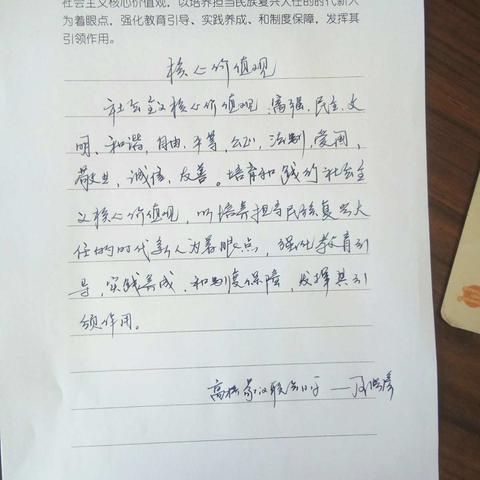 社会主义核心价值观，以培养担当民族复兴大任的时代新人
为着眼点，强化教育引导、实践养成、和制度保障，发挥其
引领作用。
核心价值观
社会主义核心价值观：富强、民主、文
明、和谐、自由、平等、公正，法制，爱国，
敬业，诚信、友善。培育和践行社会主
义核心价值观，以培养担当民族复兴大
任的时代新人为着眼点，强化教育引
导，实践养成、和制度保障，发挥其引
领作用。